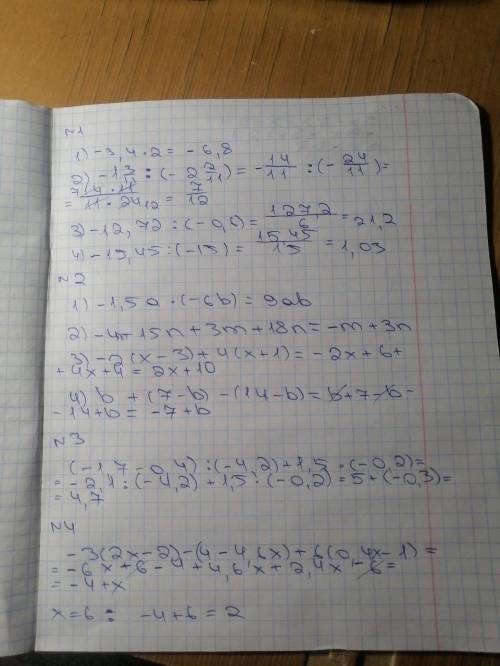 №1
1) -3,4 · 2 = -6,8
2) -1 3/11 : (-2 2/11) = -14/11 : (-24/11) =
= 14 · 11 / 11 · 24 12 = 7/12
3) -12,72 : (-0,6) = 127,2/6 = 21,2
4) -15,45 : (-15) = 15,45/15 = 1,03
№2
1) -1,5a · (-6b) = 9ab
2) -4m - 15n + 3m + 18n = -m + 3n
3) -2(x-3) + 4(x+1) = -2x + 6 +
+ 4x + 4 = 2x + 10
4) b + (7-b) - (14-b) = b + 7 - b -
- 14 + b = -7 + b
№3
(-1,7 - 0,4) : (-4,2) + 1,5 · (-0,2) =
= -2,1 : (-4,2) + 1,5 : (-0,2) = 5 + (-0,3) =
= 4,7
№4
-3(2x-2) - (4-4,6x) + 6(0,4x-1) =
= -6x + 6 - 4 + 4,6x + 2,4x - 6 =
= -4 + x
x = 6 : -4 + 6 = 2